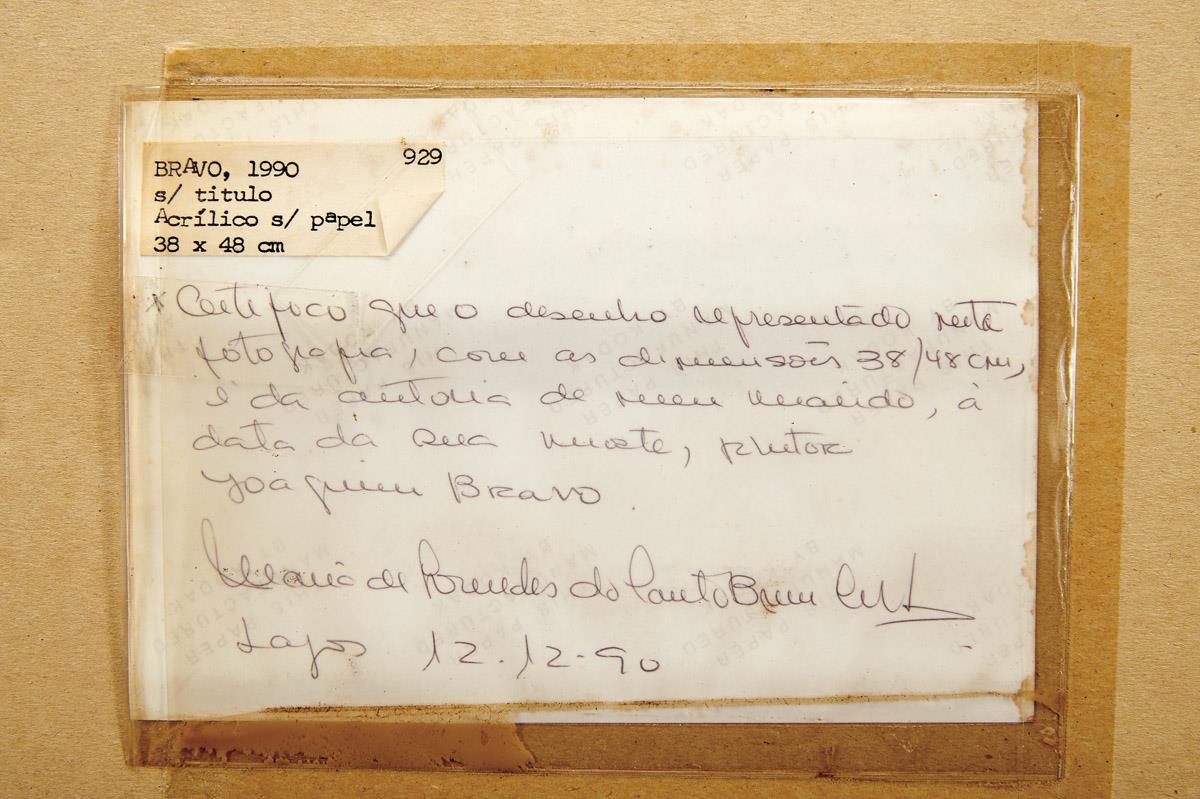 BRAVO, 1990 929
s/ titulo
Acrílico s/ papel
38 x 48 cm
Certifico que o desenho representado nesta
fotografia, com as dimensões 38/48 cm,
é da autoria de meu marido, à
data da sua morte, pintor
Joaquim Bravo.
Maria de do
Lagos 12.12.90